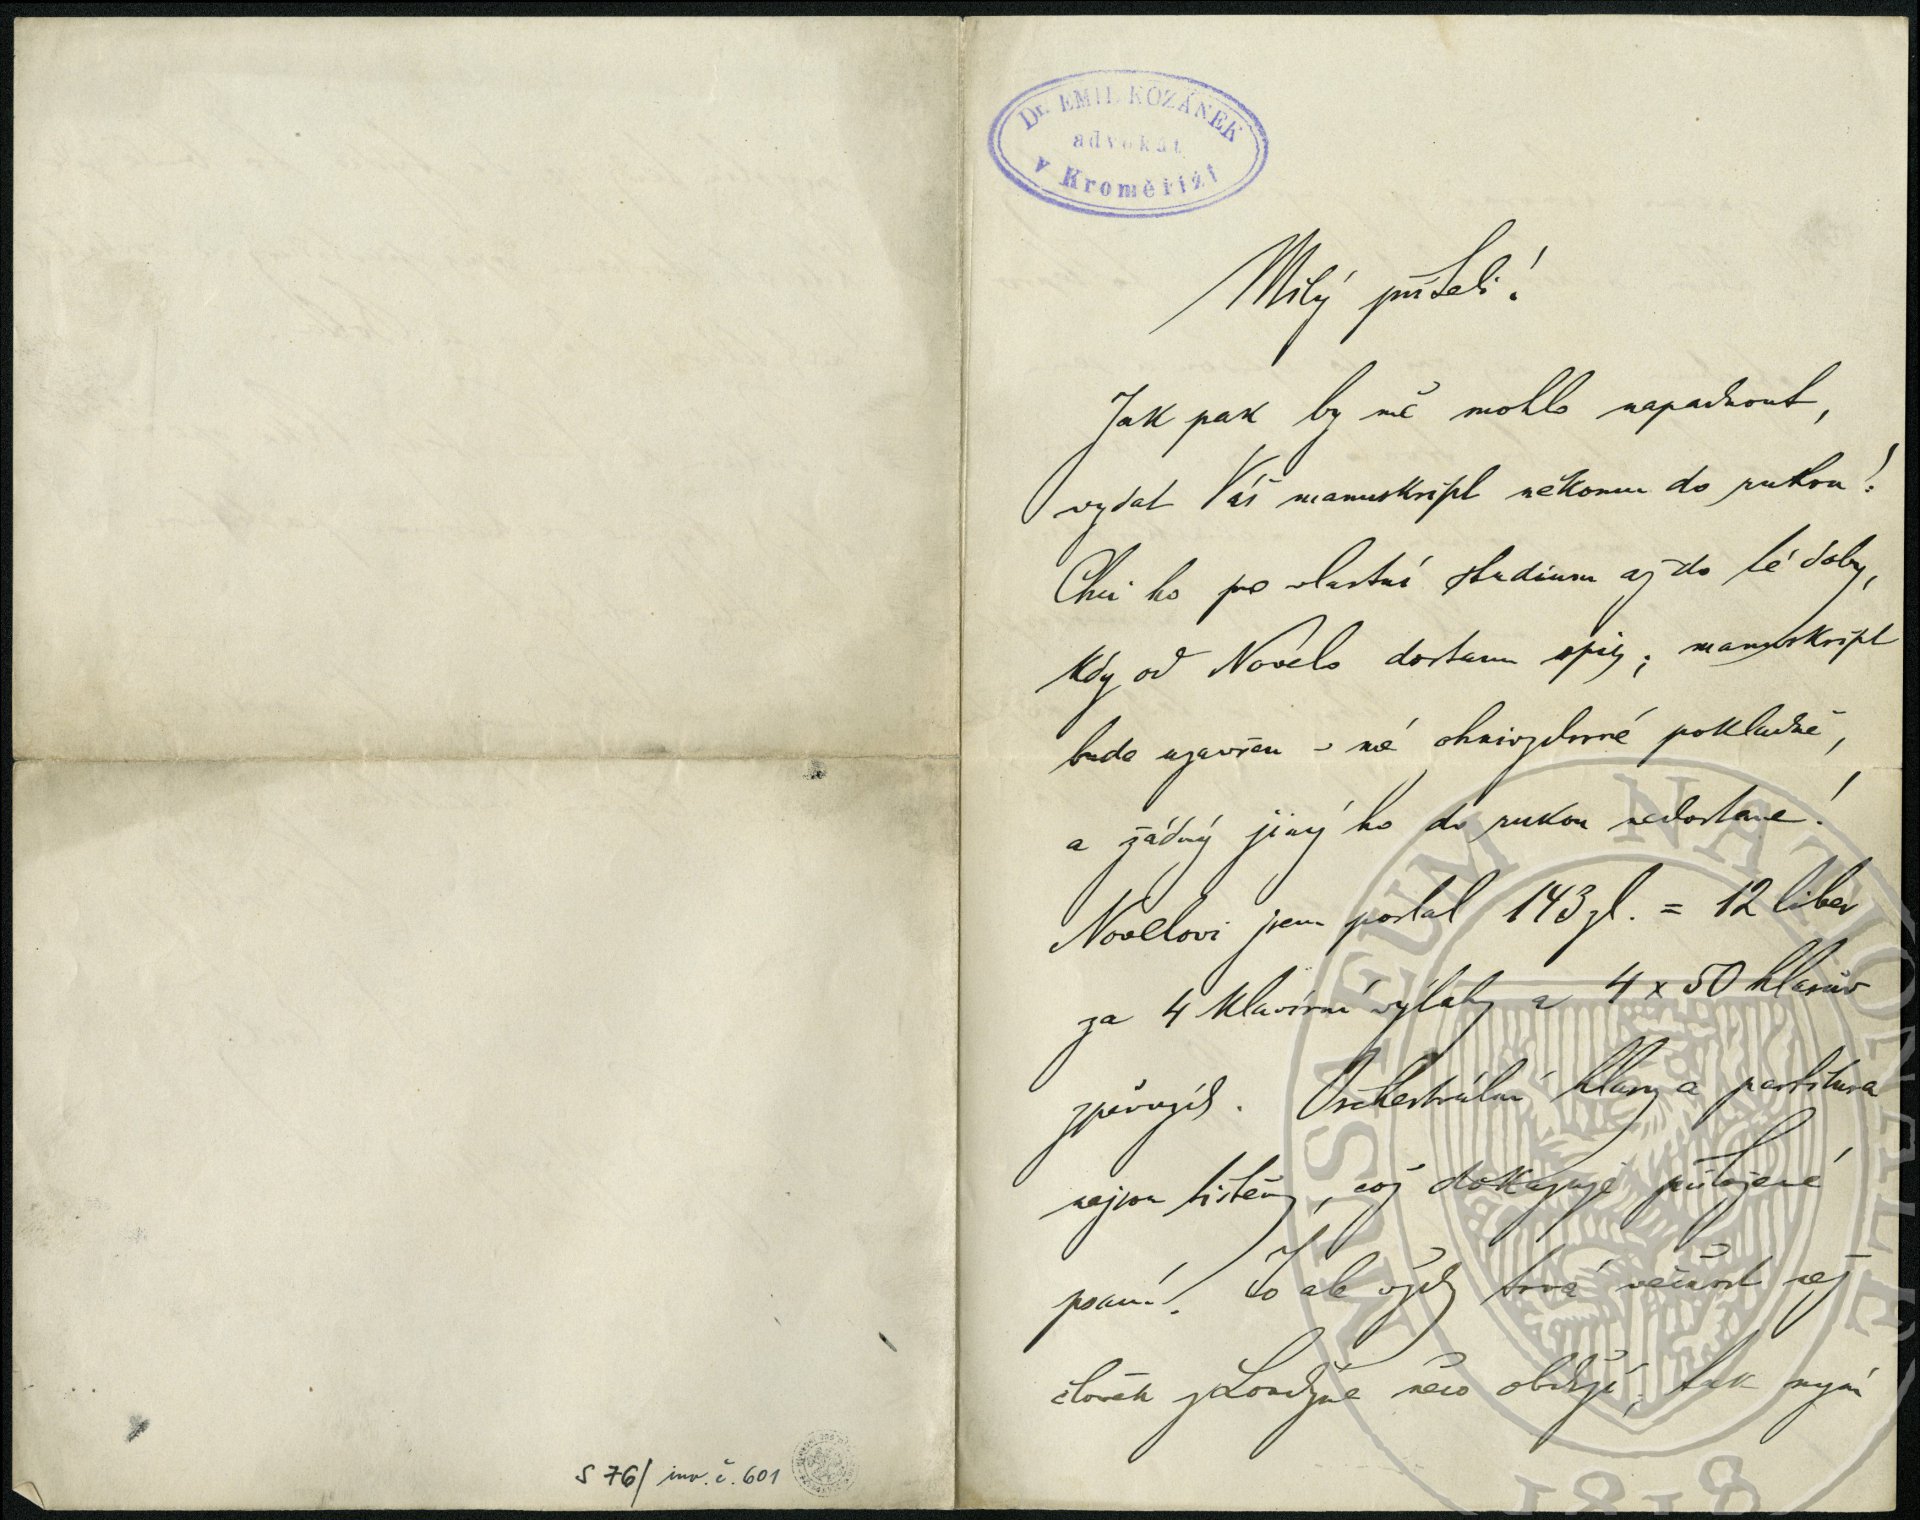 S 76/ inv. č. 601
Dr. EMIL KOZÁNEK
advokát
v Kroměříži
Milý příteli!
Jak pak by mě mohlo napadnout,
vydat Váš manuskript někomu do rukou!
Chci ho pro vlastní studium až do té doby,
kdy od Novelo dostanu opis; manuskript
bude uzavřen v mé ohnivzdorné pokladně,
a žádný jiný ho do rukou nedostane!
Novellovi jsem poslal 143 zl. = 12 liber
za 4 klavírní výtahy a 4 x 50 hlasův
zpěvných. Orchestrální hlasy a partitura
nejsou tištěny, což dokazuje přiložené
psaní! To ale vždy trvá věčnost než
člověk z Londýna něco obdrží, tak nyní
MUSAEUM NATIONALE
1818